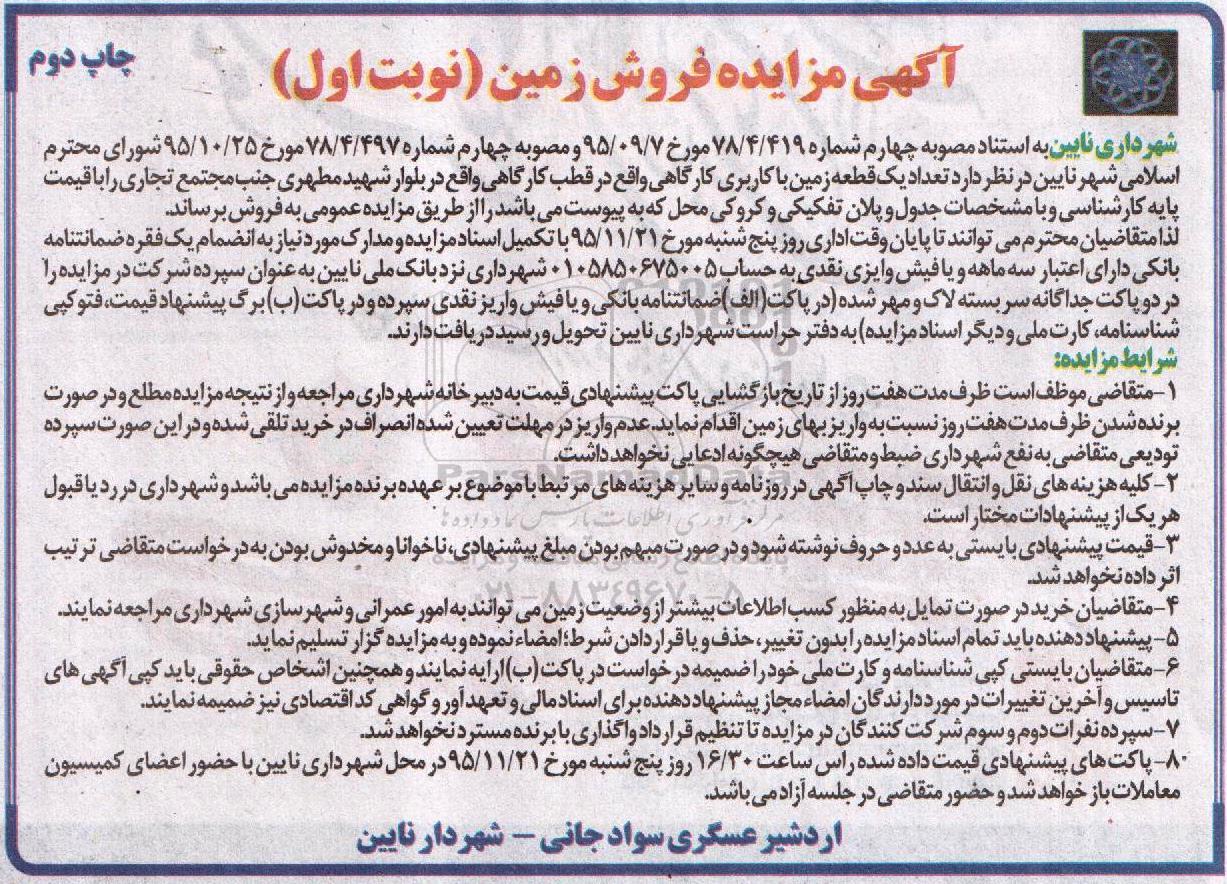 چاپ دوم
آگهی مزایده فروش زمین (نوبت اول)
شهرداری نایین به استناد مصوبه چهارم شماره ۷۸/۴/۴۱۹ مورخ ۹۵/۰۹/۷ و مصوبه چهارم شماره ۷۸/۴/۴۹۷ مورخ ۹۵/۱۰/۲۵ شورای محترم
اسلامی شهر نایین در نظر دارد تعداد یک قطعه زمین با کاربری کارگاهی واقع در قطب کارگاهی واقع در بلوار شهید مطهری جنب مجتمع تجاری را با قیمت
پایه کارشناسی و با مشخصات جدول و پلان تفکیکی و کروکی محل که به پیوست می باشد را از طریق مزایده عمومی به فروش برساند.
لذا متقاضیان محترم می توانند تا پایان وقت اداری روز پنج شنبه مورخ ۹۵/۱۱/۲۱ با تکمیل اسناد مزایده و مدارک مورد نیاز به انضمام یک فقره ضمانتنامه
بانکی دارای اعتبار سه ماهه و یا فیش وایزی نقدی به حساب ۰۱۰۵۸۵۰۶۷۵۰۰۵ شهرداری نزد بانک ملی نایین به عنوان سپرده شرکت در مزایده را
در دو پاکت جداگانه سر بسته لاک و مهر شده (در پاکت (الف) ضمانتنامه بانکی و یا فیش واریز نقدی سپرده و در پاکت (ب) برگ پیشنهاد قیمت، فتوکپی
شناسنامه، کارت ملی و دیگر اسناد مزایده) به دفتر حراست شهرداری نایین تحویل و رسید دریافت دارند.
شرایط مزایده:
۱-متقاضی موظف است ظرف مدت هفت روز از تاریخ بازگشایی پاکت پیشنهادی قیمت به دبیرخانه شهرداری مراجعه و از نتیجه مزایده مطلع و در صورت
برنده شدن ظرف مدت هفت روز نسبت به واریز بهای زمین اقدام نماید. عدم واریز در مهلت تعیین شده انصراف در خرید تلقی شده و در این صورت سپرده
تودیعی متقاضی به نفع شهرداری ضبط و متقاضی هیچگونه ادعایی نخواهد داشت.
۲-کلیه هزینه های نقل و انتقال سند و چاپ آگهی در روزنامه و سایر هزینه های مرتبط با موضوع بر عهده برنده مزایده می باشد و شهرداری در رد یا قبول
هر یک از پیشنهادات مختار است.
۳-قیمت پیشنهادی بایستی به عدد و حروف نوشته شود و در صورت مبهم بودن مبلغ پیشنهادی، ناخوانا و مخدوش بودن به درخواست متقاضی ترتیب
اثر داده نخواهد شد.
۴-متقاضیان خرید در صورت تمایل به منظور کسب اطلاعات بیشتر از وضعیت زمین می توانند به امور عمرانی و شهرسازی شهرداری مراجعه نمایند.
۵-پیشنهاد دهنده باید تمام اسناد مزایده را بدون تغییر، حذف و یا قرار دادن شرط؛ امضاء نموده و به مزایده گزار تسلیم نماید.
۶-متقاضیان بایستی کپی شناسنامه و کارت ملی خود را ضمیمه درخواست در پاکت (ب) ارایه نمایند و همچنین اشخاص حقوقی باید کپی آگهی های
تاسیس و آخرین تغییرات در مورد دارندگان امضاء مجاز پیشنهاد دهنده برای اسناد مالی و تعهدآور و گواهی کد اقتصادی نیز ضمیمه نمایند.
۷-سپرده نفرات دوم و سوم شرکت کنندگان در مزایده تا تنظیم قرارداد واگذاری با برنده مسترد نخواهد شد.
۸- پاکت های پیشنهادی قیمت داده شده راس ساعت ۱۶/۳۰ روز پنج شنبه مورخ ۹۵/۱۱/۲۱ در محل شهرداری نایین با حضور اعضای کمیسیون
معاملات باز خواهد شد و حضور متقاضی در جلسه آزاد می باشد.
اردشیر عسگری سوادجانی - شهردار نایین
ParsNamadData
۰۲۱-۸۸۳۴۹۶۷۰-۵